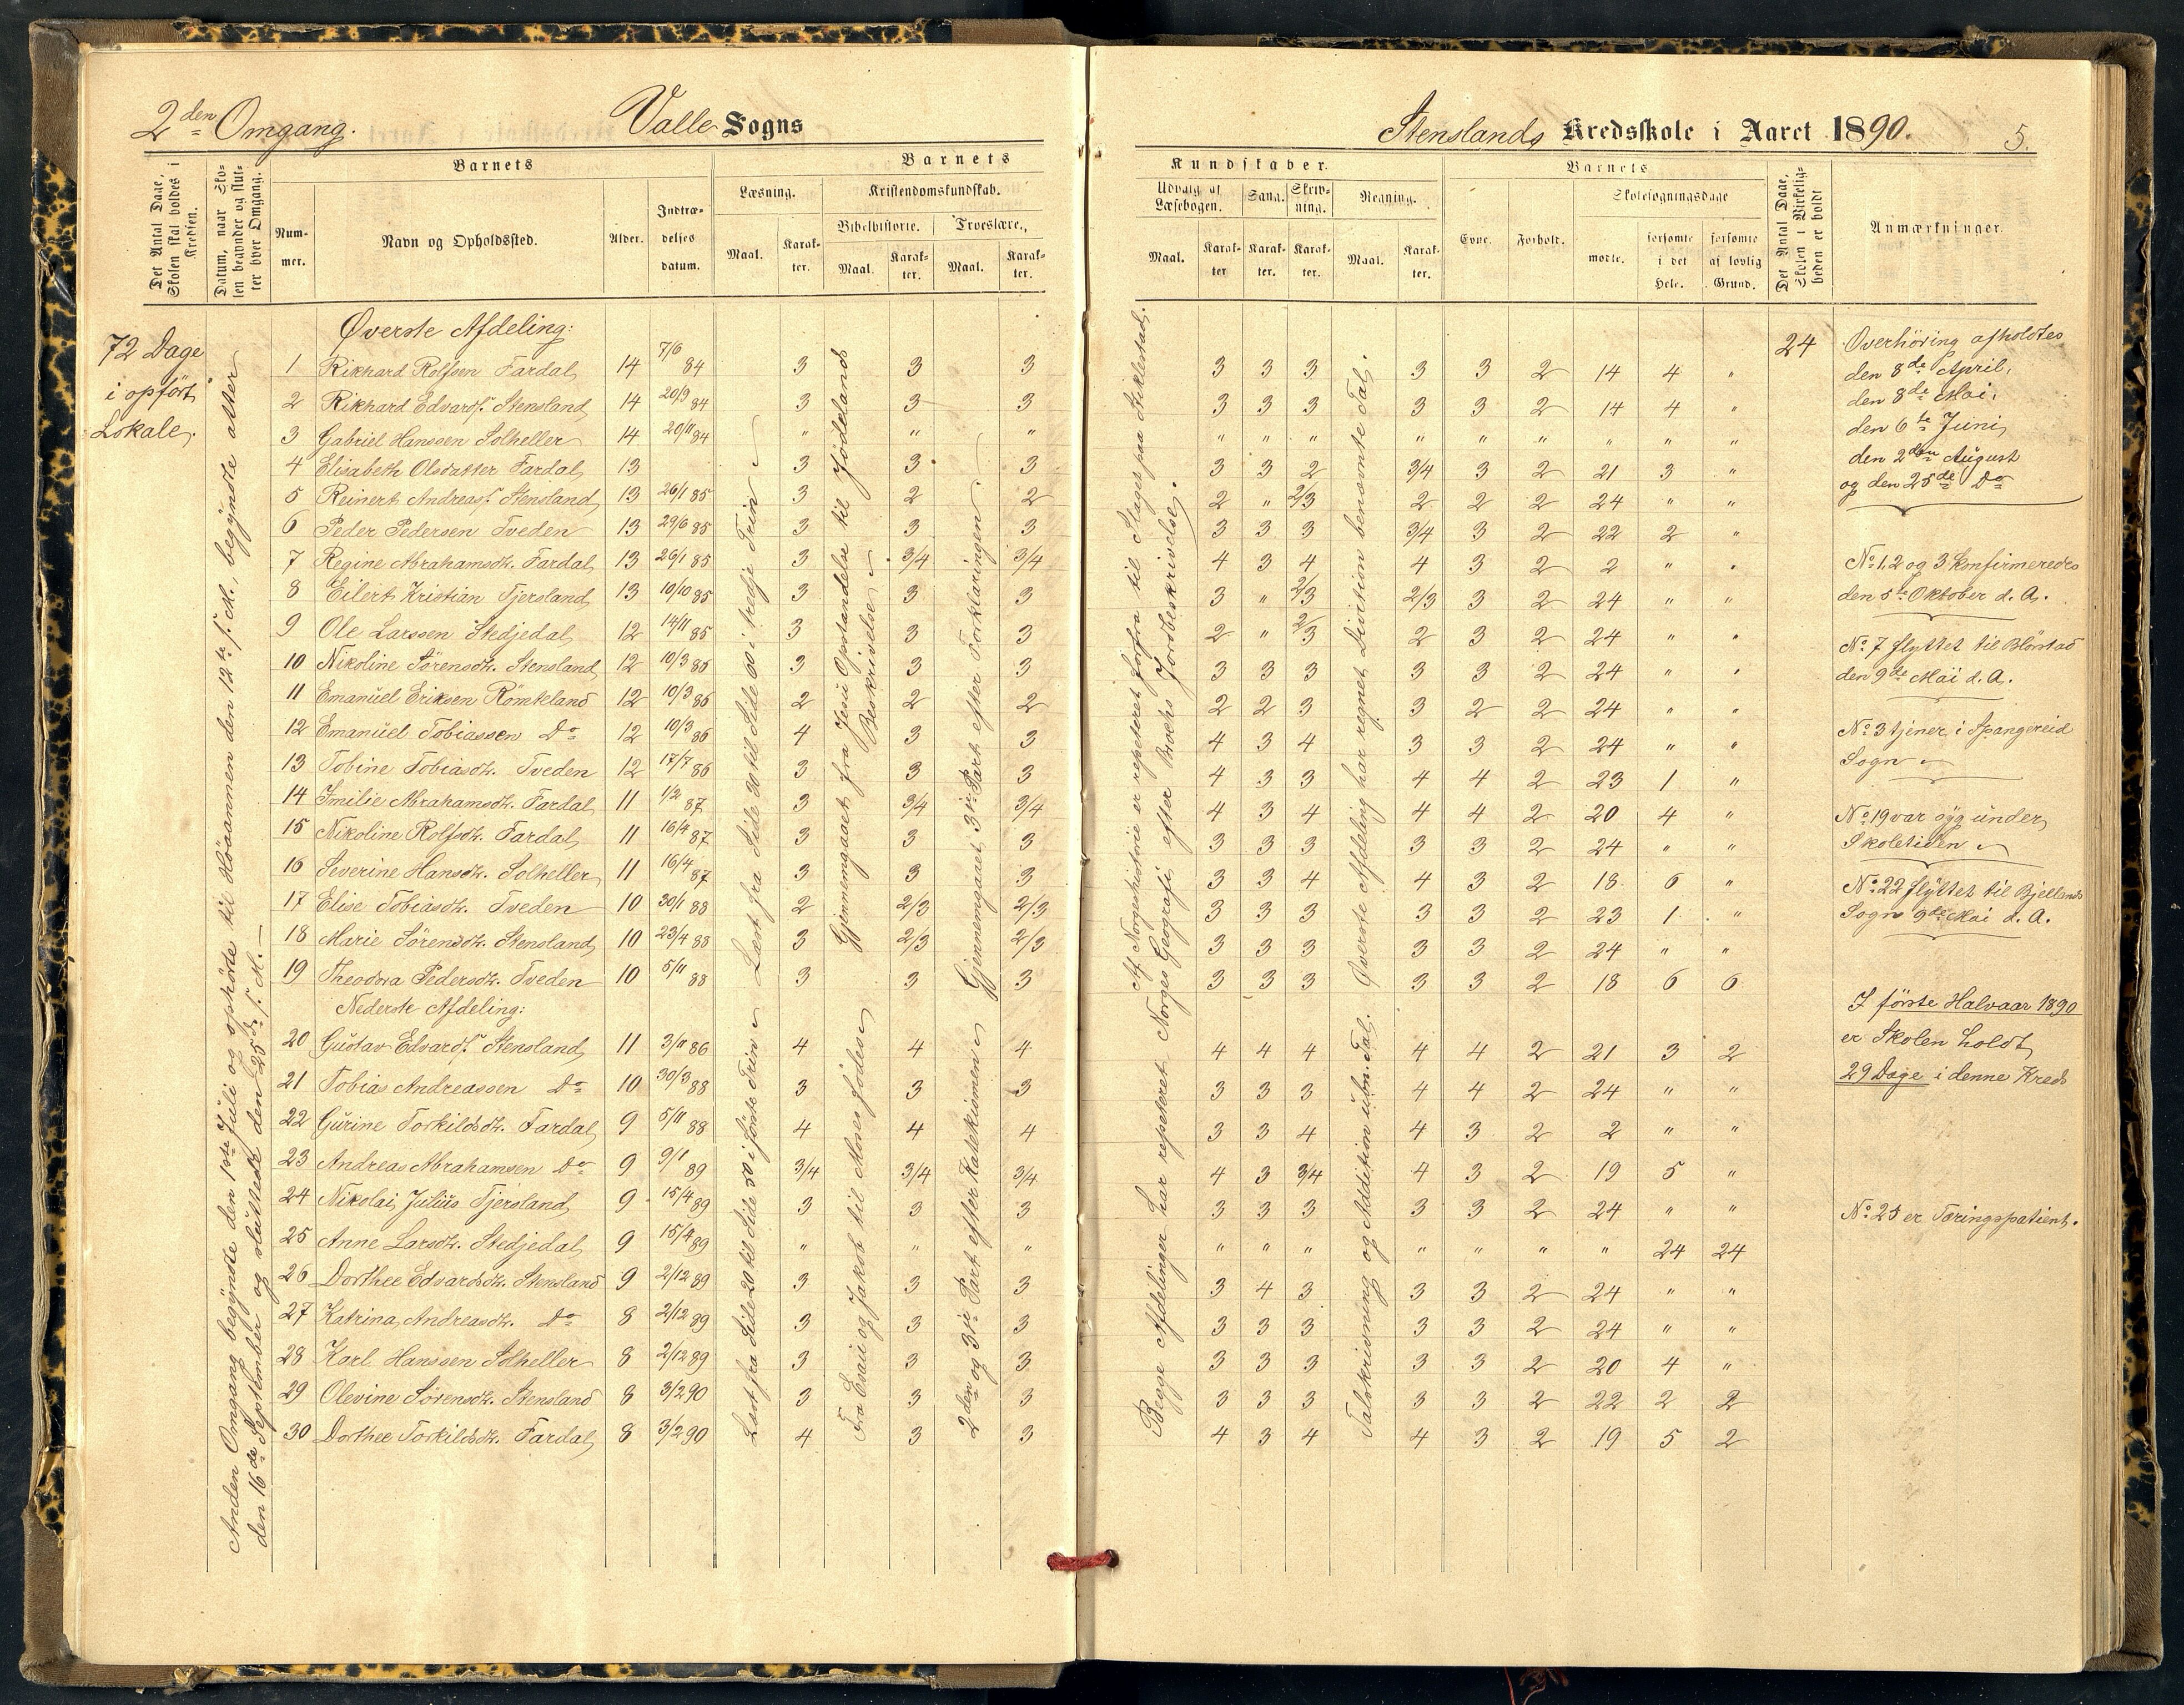 2den Omgang.
Valle Sogns
Det Antal Dage, Skolen skal holdes i Kredsen.
Datum, naar Skolen begynder og slutter hver Omgang.
Barnets
Nummer.
Navn og Opholdssted.
Alder.
Indtrædelses datum.
Barnets
Læsning.
Kristendomskundskab.
Bibelhistorie.
Troeslære.
Maal.
Karakter.
Maal.
Karakter.
Maal.
Karakter.
72 Dage
i opført
Lokale.
Anden Omgang begyndte den 1ste Juli og ophørte til Høaannen den 12te s. M., begyndte atter
den 16de September og sluttede den 25de s. M.
Øverste Afdeling:
1 Rikhard Rolfsen Fardal 14 7/6 84 3 3 3
2 Rikhard Edvards. Stensland 14 20/3 84 3 3 3
3 Gabriel Hanssen Solheller 14 20/11 84 " " "
4 Elisabeth Olsdatter Fardal 13 3 3 3
5 Reinert Andreass. Stensland 13 26/1 85 3 2 2
6 Peder Pedersen Tveden 13 29/6 85 3 3 3
7 Regine Abrahamsdtr. Fardal 13 26/1 85 3 3/4 3/4
8 Eilert Kristian Tjersland 13 10/10 85 3 3 3
9 Ole Larssen Stedjedal 12 14/11 85 3 3 3
10 Nikoline Sørensdtr. Stensland 12 10/3 86 3 3 3
11 Emanuel Eriksen Römteland 12 10/3 86 2 2 2
12 Emanuel Tobiassen Do 12 10/3 86 4 3 3
13 Tobine Tobiasdtr. Tveden 12 17/7 86 3 3 3
14 Emilie Abrahamsdtr. Fardal 11 1/2 87 3 3/4 3/4
15 Nikoline Rolfsdtr. Fardal 11 16/4 87 3 3 3
16 Severine Hansdtr. Solheller 11 16/4 87 3 3 3
17 Elise Tobiasdtr. Tveden 10 30/1 88 2 2/3 2/3
18 Marie Sørensdtr. Stensland 10 23/4 88 3 2/3 2/3
19 Theodora Pedersdtr. Tveden 10 5/11 88 3 3 3
Nederste Afdeling:
20 Gustav Edvards. Stensland 11 3/11 86 4 4 4
21 Tobias Andreassen Do 10 30/3 88 3 3 3
22 Gurine Torkildsdtr. Fardal 9 5/11 88 4 4 4
23 Andreas Abrahamsen Do 9 9/1 89 3/4 3/4 3/4
24 Nikolai Julius Tjersland 9 15/4 89 3 3 3
25 Anne Larsdtr. Stedjedal 9 15/4 89 " " "
26 Dorthee Edvardsdtr. Stensland 9 2/12 89 3 3 3
27 Katrina Andreasdtr. Do 8 2/12 89 3 3 3
28 Karl Hanssen Solheller 8 2/12 89 3 3 3
29 Olevine Sørensdtr. Stensland 8 3/2 90 3 3 3
30 Dorthee Torkildsdtr. Fardal 8 3/2 90 4 3 3
Læst fra Side 20 til Side 60 i tredje Trin
Læst fra Side 20 til Side 50 i første Trin
Gjennemgaaet fra Jesu Opstandelse til Jødelands
Beskrivelse
Fra Esau og Jakob til Moses fødes
Gjennemgaaet 3die Part efter Forklaringen
2den og 3die Part efter Katekismen
Stenslands Kredsskole i Aaret 1890.
5.
Kundskaber.
Udvalg af Læsebogen.
Sang.
Skrivning.
Regning.
Maal.
Karakter
Karakter.
Karakter.
Maal.
Karakter.
Barnets
Evne.
Forhold.
Skolesøgningsdage
mødte.
forsømte i det Hele.
forsømte af lovlig Grund.
Det Antal Dage, Skolen i Virkeligheden er holdt
Anmærkninger.
Af Norgeshistorie er repeteret forfra til Slaget paa Stiklestad.
Norges Geografi efter Brochs Jordbeskrivelse.
Begge Afdelinger har repeteret
Øverste Afdeling har regnet Division benævnte Tal.
Talskrivning og Addition ubn. Tal.
3 3 3 3 3 2 14 4 "
3 3 3 3 3 2 14 4 "
" " " " " " " " "
3 3 2 3/4 3 2 21 3 "
2 " 2/3 2 2 2 24 " "
3 3 3 3/4 3 2 22 2 "
4 3 4 4 3 2 2 " "
3 " 2/3 2/3 3 2 24 " "
2 " 2/3 2 3 2 24 " "
3 3 3 3 3 2 24 " "
2 2 3 3 2 2 24 " "
4 3 4 3 3 2 24 " "
4 3 3 4 4 2 23 1 "
4 3 4 4 4 2 20 4 "
3 3 3 3 3 2 24 " "
3 3 4 4 3 2 18 6 "
3 3 3 3 3 2 23 1 "
3 3 3 3 3 2 24 " "
3 3 3 3 3 2 18 6 6
4 4 4 4 4 2 21 3 2
3 3 3 4 4 2 24 " "
3 3 4 4 3 2 2 " "
4 3 3/4 4 3 2 19 5 "
3 3 3 3 3 2 24 " "
" " " " " " " 24 24
3 4 3 3 3 2 24 " "
3 3 3 3 3 2 24 " "
3 3 3 3 3 2 20 4 "
3 3 3 3 3 2 22 2 2
4 3 4 4 3 2 19 5 2
24
Overhöring afholdtes
den 8de April,
den 8de Mai,
den 6te Juni,
den 2den August
og den 25de Do
No 1, 2 og 3 konfirmeredes
den 5te Oktober d. A.
No 7 flyttet til Blörstad
den 9de Mai d. A.
No 3 tjener i Spangereid
Sogn
No 19 var syg under
Skoletiden
No 22 flyttet til Bjellands
Sogn 9de Mai d. A.
I første Halvaar 1890
er Skolen holdt
29 Dage i denne Kreds
No 25 er Tæringspatient.